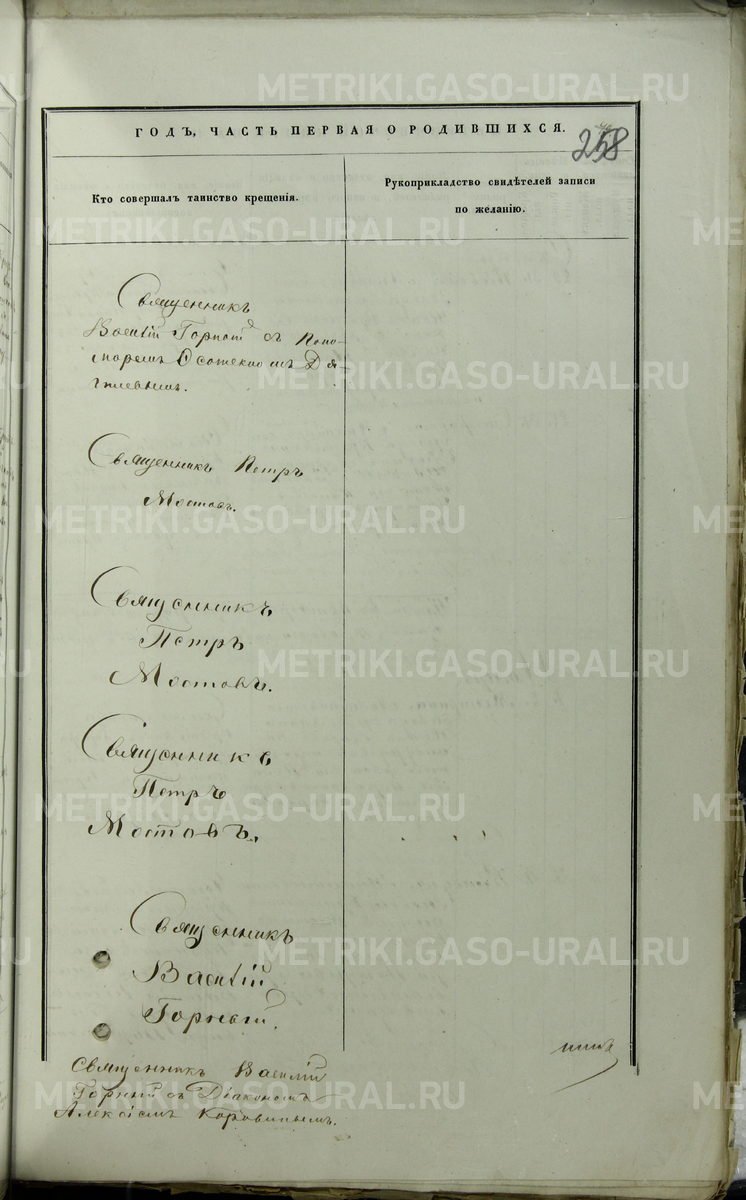 ГОДЪ, ЧАСТЬ ПЕРВАЯ О РОДИВШИХСЯ.
258
Кто совершалъ таинство крещенія.
Рукоприкладство свидѣтелей записи
по желанію.
Священникъ
Василій Горный съ Поно-
маремъ
Священникъ Петръ
Мостовъ.
Священникъ
Петръ
Мостовъ.
Священникъ
Петръ
Мостовъ.
Священникъ
Василій
Горный.
Священникъ Василій
Горный съ Діакономъ
Алексѣемъ
METRIKI.GASO-URAL.RU